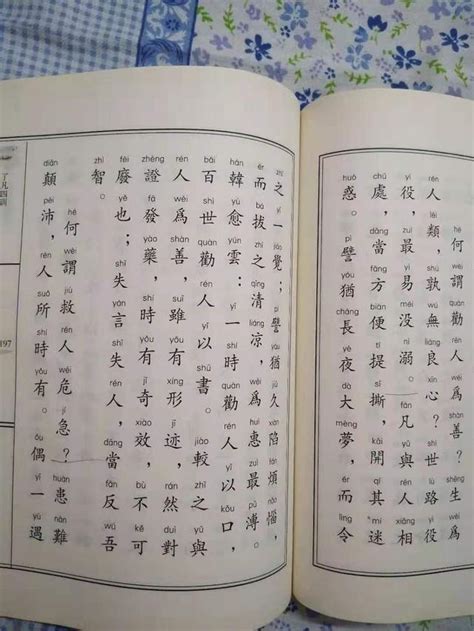 何謂勸人爲善?生爲
人類,孰無良心?世路役
役,最易沒溺。凡與人相
處,當方便提撕,開其迷
惑。譬猶長夜大夢,而令
之一覺;譬猶久陷煩惱,
而拔之清涼,爲惠最溥。
韓愈雲:一時勸人以口,
百世勸人以書。較之與
人爲善,雖有形迹,然對
證發藥,時有奇效,不可
廢也;失言失人,當反吾
智。
何謂救人危急?患難
顛沛,人所時有。偶一遇
了凡四訓
197